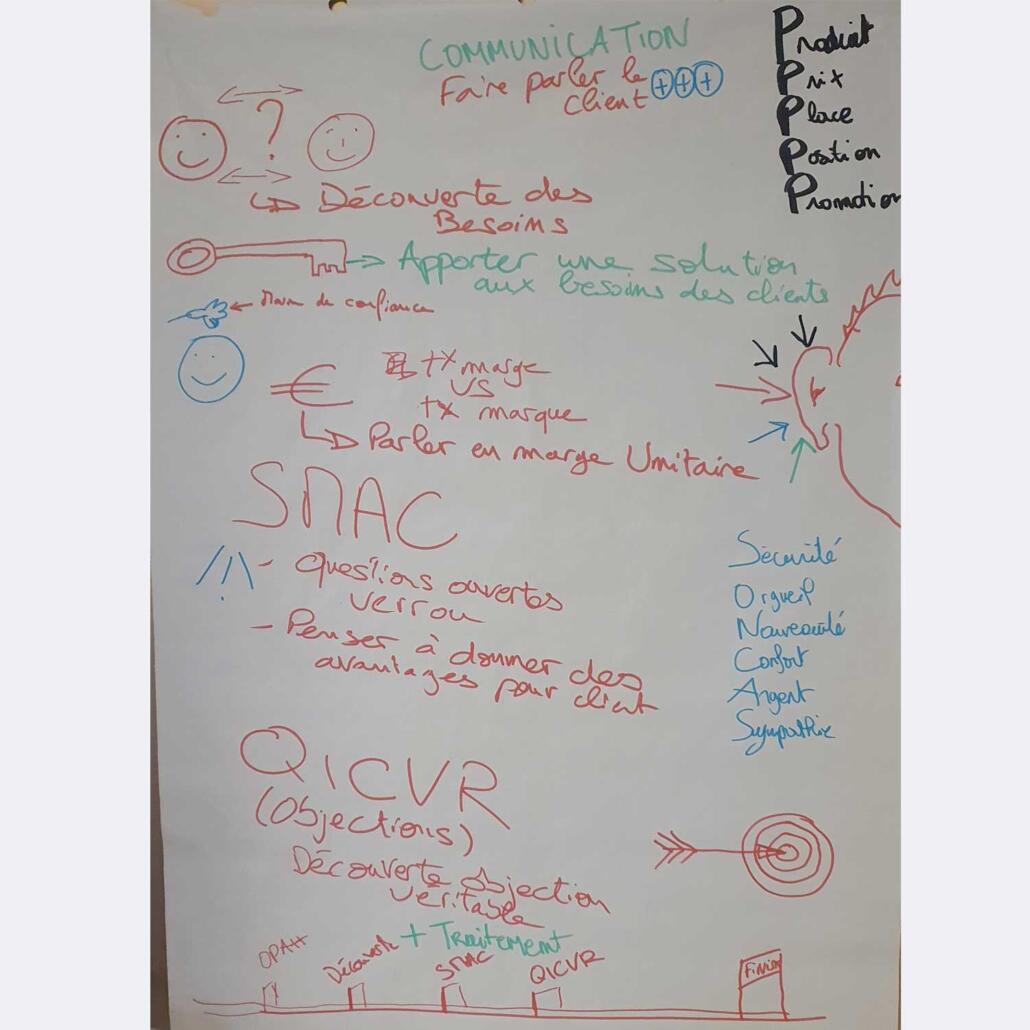 COMMUNICATION
Faire parler le
client +++
Produit
Prix
Place
Position
Promotion
?
Découverte des
Besoins
Apporter une solution
aux besoins des clients
de confiance
€
tx marge
VS
tx marque
Parler en marge Unitaire
SMAC
- Questions ouvertes
verrou
- Penser à donner des
avantages pour client
Sécurité
Orgueil
Nouveauté
Confort
Argent
Sympathie
QICVR
(Objections)
Découverte objection
véritable
+ Traitement
Découverte
SMAC
QICVR